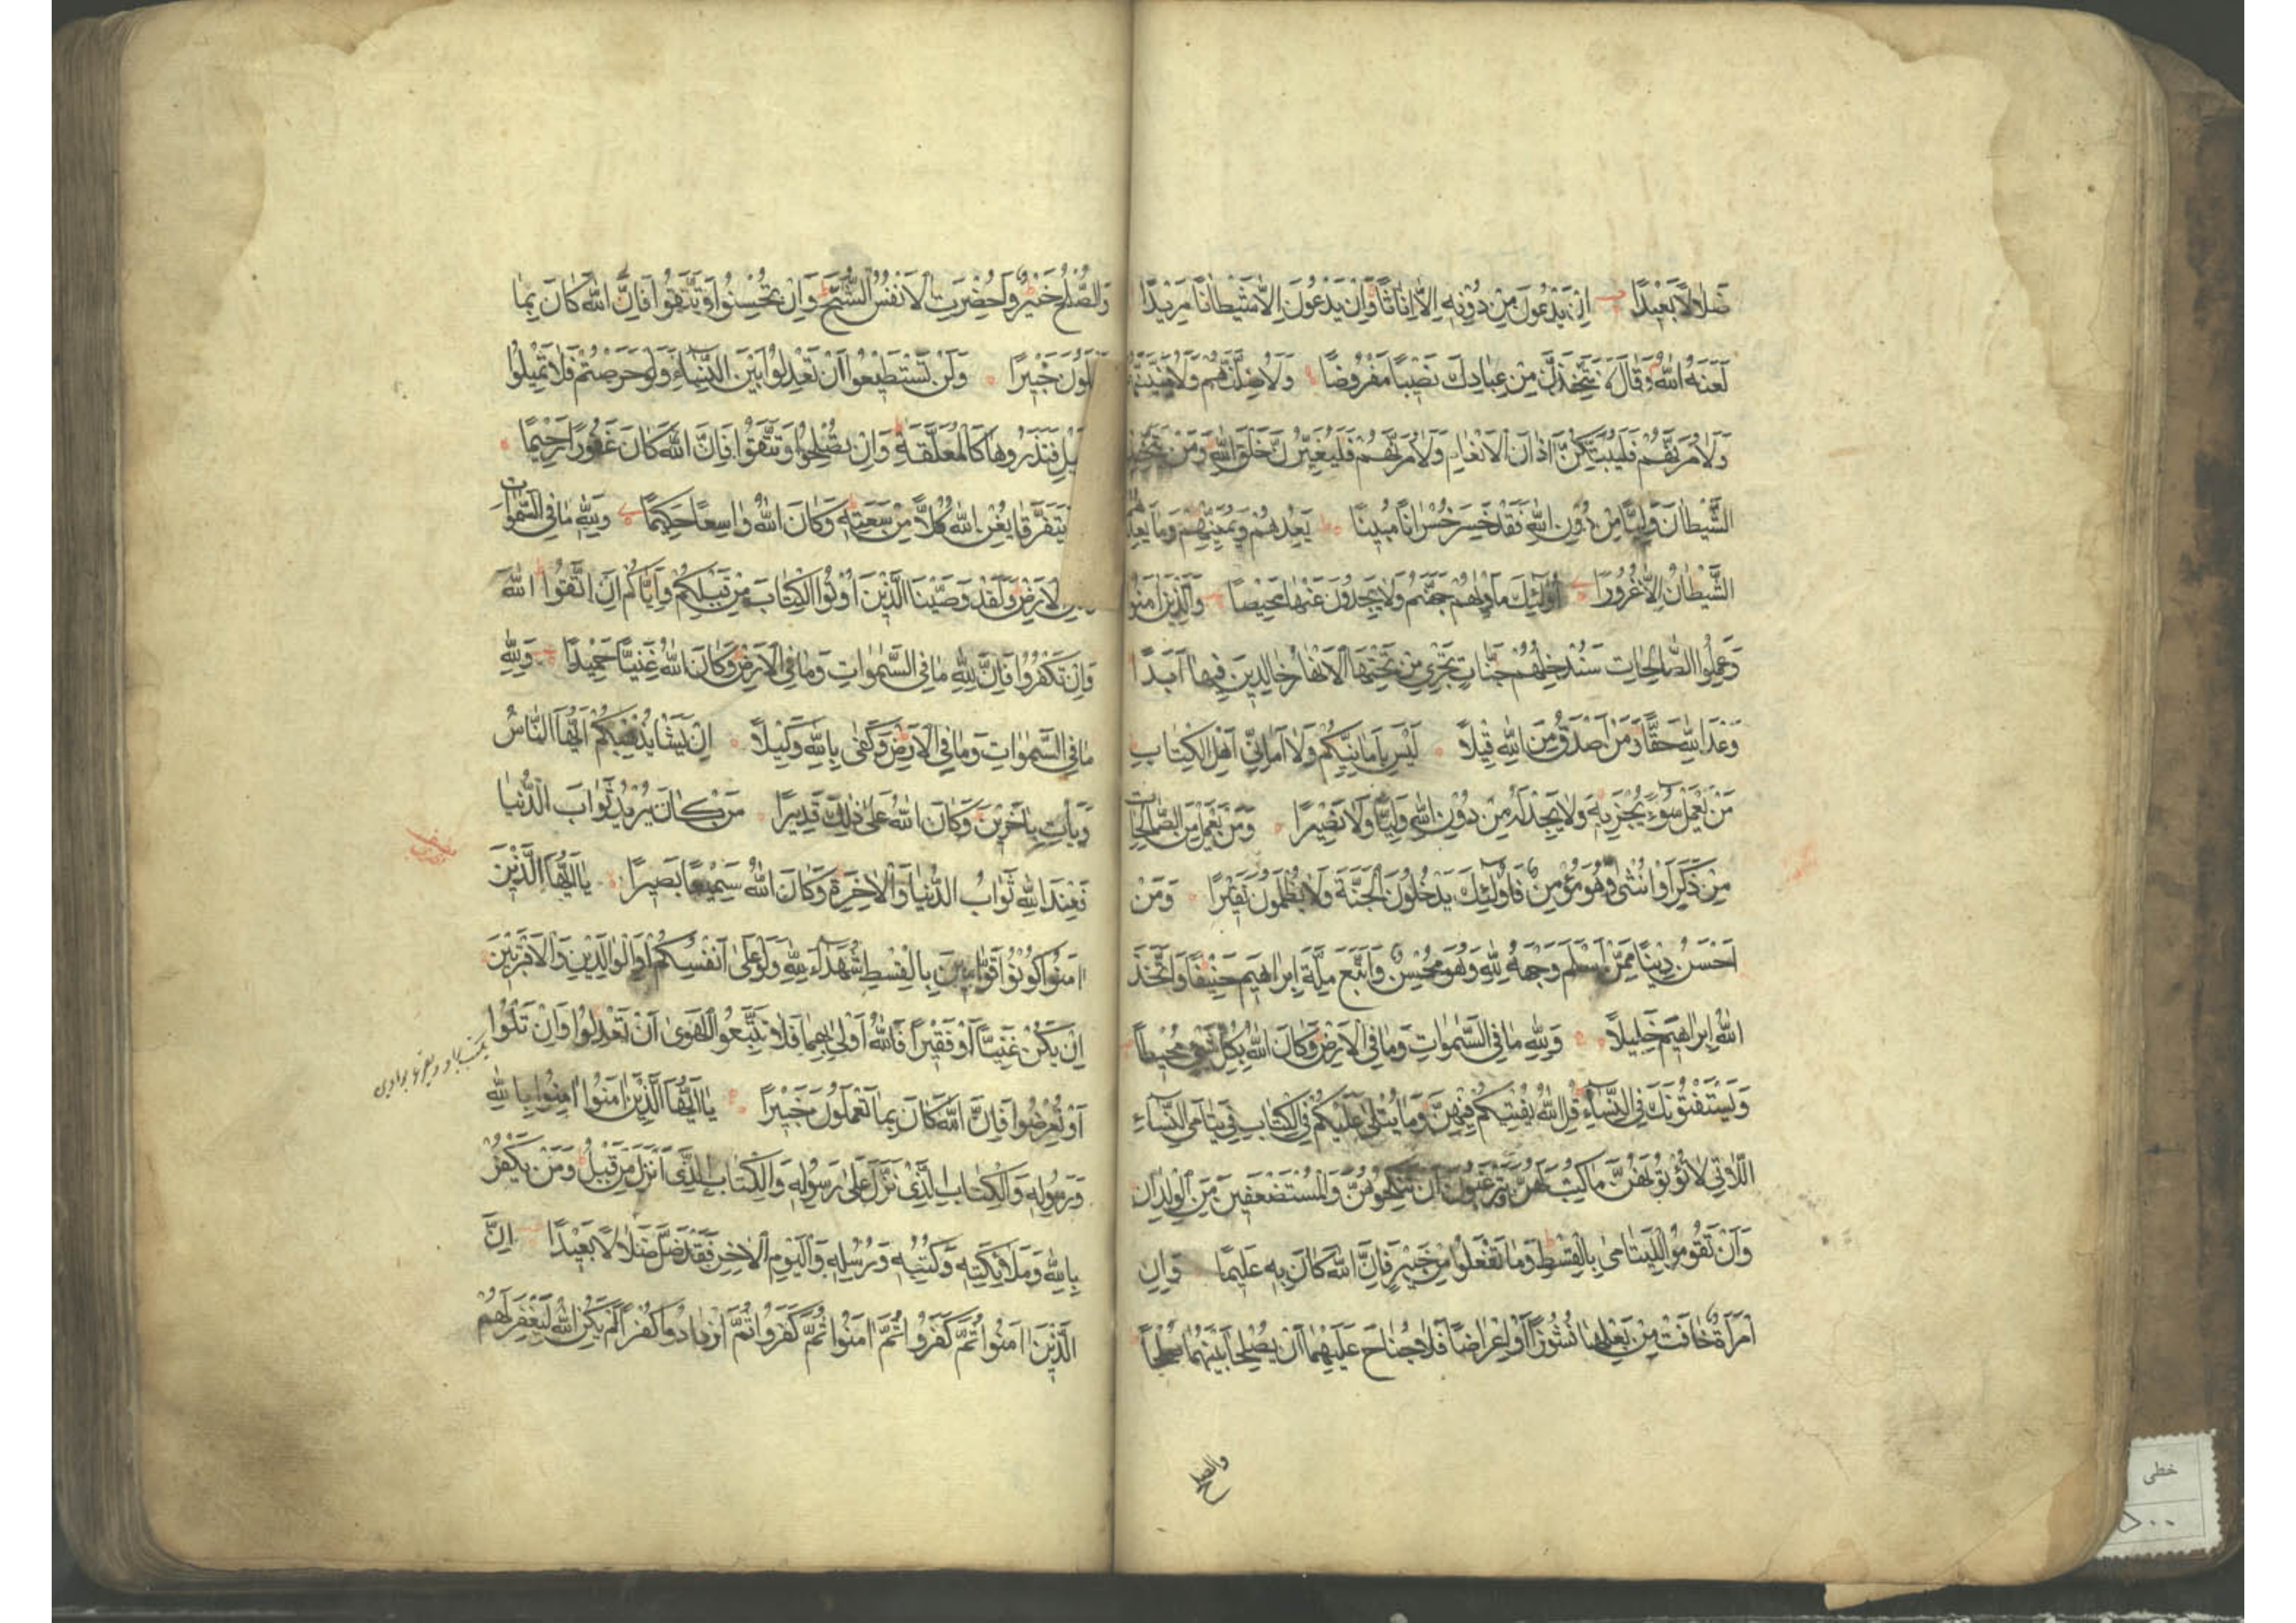 ضَلَالًا بَعِيدًا اِنْ يَدْعُونَ مِنْ دُونِهِ اِلَّا اِنَاثًا وَاِنْ يَدْعُونَ اِلَّا شَيْطَانًا مَرِيدًا
لَعَنَهُ اللّٰهُ وَقَالَ لَاَتَّخِذَنَّ مِنْ عِبَادِكَ نَصِيبًا مَفْرُوضًا وَلَاُضِلَّنَّهُمْ وَلَاُمَنِّيَنَّهُمْ
وَلَاٰمُرَنَّهُمْ فَلَيُبَتِّكُنَّ اٰذَانَ الْاَنْعَامِ وَلَاٰمُرَنَّهُمْ فَلَيُغَيِّرُنَّ خَلْقَ اللّٰهِ وَمَنْ يَتَّخِذِ
الشَّيْطَانَ وَلِيًّا مِنْ دُونِ اللّٰهِ فَقَدْ خَسِرَ خُسْرَانًا مُبِينًا يَعِدُهُمْ وَيُمَنِّيهِمْ وَمَا يَعِدُهُمُ
الشَّيْطَانُ اِلَّا غُرُورًا اُولٰئِكَ مَاْوٰيهُمْ جَهَنَّمُ وَلَا يَجِدُونَ عَنْهَا مَحِيصًا وَالَّذِينَ اٰمَنُوا
وَعَمِلُوا الصَّالِحَاتِ سَنُدْخِلُهُمْ جَنَّاتٍ تَجْرِي مِنْ تَحْتِهَا الْاَنْهَارُ خَالِدِينَ فِيهَا اَبَدًا
وَعْدَ اللّٰهِ حَقًّا وَمَنْ اَصْدَقُ مِنَ اللّٰهِ قِيلًا لَيْسَ بِاَمَانِيِّكُمْ وَلَا اَمَانِيِّ اَهْلِ الْكِتَابِ
مَنْ يَعْمَلْ سُوءًا يُجْزَ بِهِ وَلَا يَجِدْ لَهُ مِنْ دُونِ اللّٰهِ وَلِيًّا وَلَا نَصِيرًا وَمَنْ يَعْمَلْ مِنَ الصَّالِحَاتِ
مِنْ ذَكَرٍ اَوْ اُنْثٰى وَهُوَ مُؤْمِنٌ فَاُولٰئِكَ يَدْخُلُونَ الْجَنَّةَ وَلَا يُظْلَمُونَ نَقِيرًا وَمَنْ
اَحْسَنُ دِينًا مِمَّنْ اَسْلَمَ وَجْهَهُ لِلّٰهِ وَهُوَ مُحْسِنٌ وَاتَّبَعَ مِلَّةَ اِبْرَاهِيمَ حَنِيفًا وَاتَّخَذَ
اللّٰهُ اِبْرَاهِيمَ خَلِيلًا وَلِلّٰهِ مَا فِي السَّمٰوَاتِ وَمَا فِي الْاَرْضِ وَكَانَ اللّٰهُ بِكُلِّ شَيْءٍ مُحِيطًا
وَيَسْتَفْتُونَكَ فِي النِّسَاءِ قُلِ اللّٰهُ يُفْتِيكُمْ فِيهِنَّ وَمَا يُتْلٰى عَلَيْكُمْ فِي الْكِتَابِ فِي يَتَامَى النِّسَاءِ
اللَّاتِي لَا تُؤْتُونَهُنَّ مَا كُتِبَ لَهُنَّ وَتَرْغَبُونَ اَنْ تَنْكِحُوهُنَّ وَالْمُسْتَضْعَفِينَ مِنَ الْوِلْدَانِ
وَاَنْ تَقُومُوا لِلْيَتَامٰى بِالْقِسْطِ وَمَا تَفْعَلُوا مِنْ خَيْرٍ فَاِنَّ اللّٰهَ كَانَ بِهِ عَلِيمًا وَاِنِ
امْرَاَةٌ خَافَتْ مِنْ بَعْلِهَا نُشُوزًا اَوْ اِعْرَاضًا فَلَا جُنَاحَ عَلَيْهِمَا اَنْ يُصْلِحَا بَيْنَهُمَا صُلْحًا
والصلح
وَالصُّلْحُ خَيْرٌ وَاُحْضِرَتِ الْاَنْفُسُ الشُّحَّ وَاِنْ تُحْسِنُوا وَتَتَّقُوا فَاِنَّ اللّٰهَ كَانَ بِمَا
خَبِيرًا وَلَنْ تَسْتَطِيعُوا اَنْ تَعْدِلُوا بَيْنَ النِّسَاءِ وَلَوْ حَرَصْتُمْ فَلَا تَمِيلُوا
فَتَذَرُوهَا كَالْمُعَلَّقَةِ وَاِنْ تُصْلِحُوا وَتَتَّقُوا فَاِنَّ اللّٰهَ كَانَ غَفُورًا رَحِيمًا
يَتَفَرَّقَا يُغْنِ اللّٰهُ كُلًّا مِنْ سَعَتِهِ وَكَانَ اللّٰهُ وَاسِعًا حَكِيمًا وَلِلّٰهِ مَا فِي السَّمٰوَاتِ
الْاَرْضِ وَلَقَدْ وَصَّيْنَا الَّذِينَ اُوتُوا الْكِتَابَ مِنْ قَبْلِكُمْ وَاِيَّاكُمْ اَنِ اتَّقُوا اللّٰهَ
وَاِنْ تَكْفُرُوا فَاِنَّ لِلّٰهِ مَا فِي السَّمٰوَاتِ وَمَا فِي الْاَرْضِ وَكَانَ اللّٰهُ غَنِيًّا حَمِيدًا وَلِلّٰهِ
مَا فِي السَّمٰوَاتِ وَمَا فِي الْاَرْضِ وَكَفٰى بِاللّٰهِ وَكِيلًا اِنْ يَشَاْ يُذْهِبْكُمْ اَيُّهَا النَّاسُ
وَيَاْتِ بِاٰخَرِينَ وَكَانَ اللّٰهُ عَلٰى ذٰلِكَ قَدِيرًا مَنْ كَانَ يُرِيدُ ثَوَابَ الدُّنْيَا
فَعِنْدَ اللّٰهِ ثَوَابُ الدُّنْيَا وَالْاٰخِرَةِ وَكَانَ اللّٰهُ سَمِيعًا بَصِيرًا يَا اَيُّهَا الَّذِينَ
اٰمَنُوا كُونُوا قَوَّامِينَ بِالْقِسْطِ شُهَدَاءَ لِلّٰهِ وَلَوْ عَلٰى اَنْفُسِكُمْ اَوِ الْوَالِدَيْنِ وَالْاَقْرَبِينَ
اِنْ يَكُنْ غَنِيًّا اَوْ فَقِيرًا فَاللّٰهُ اَوْلٰى بِهِمَا فَلَا تَتَّبِعُوا الْهَوٰى اَنْ تَعْدِلُوا وَاِنْ تَلْوُوا
اَوْ تُعْرِضُوا فَاِنَّ اللّٰهَ كَانَ بِمَا تَعْمَلُونَ خَبِيرًا يَا اَيُّهَا الَّذِينَ اٰمَنُوا اٰمِنُوا بِاللّٰهِ
وَرَسُولِهِ وَالْكِتَابِ الَّذِي نَزَّلَ عَلٰى رَسُولِهِ وَالْكِتَابِ الَّذِي اَنْزَلَ مِنْ قَبْلُ وَمَنْ يَكْفُرْ
بِاللّٰهِ وَمَلٰئِكَتِهِ وَكُتُبِهِ وَرُسُلِهِ وَالْيَوْمِ الْاٰخِرِ فَقَدْ ضَلَّ ضَلَالًا بَعِيدًا اِنَّ
الَّذِينَ اٰمَنُوا ثُمَّ كَفَرُوا ثُمَّ اٰمَنُوا ثُمَّ كَفَرُوا ثُمَّ ازْدَادُوا كُفْرًا لَمْ يَكُنِ اللّٰهُ لِيَغْفِرَ لَهُمْ
خطی